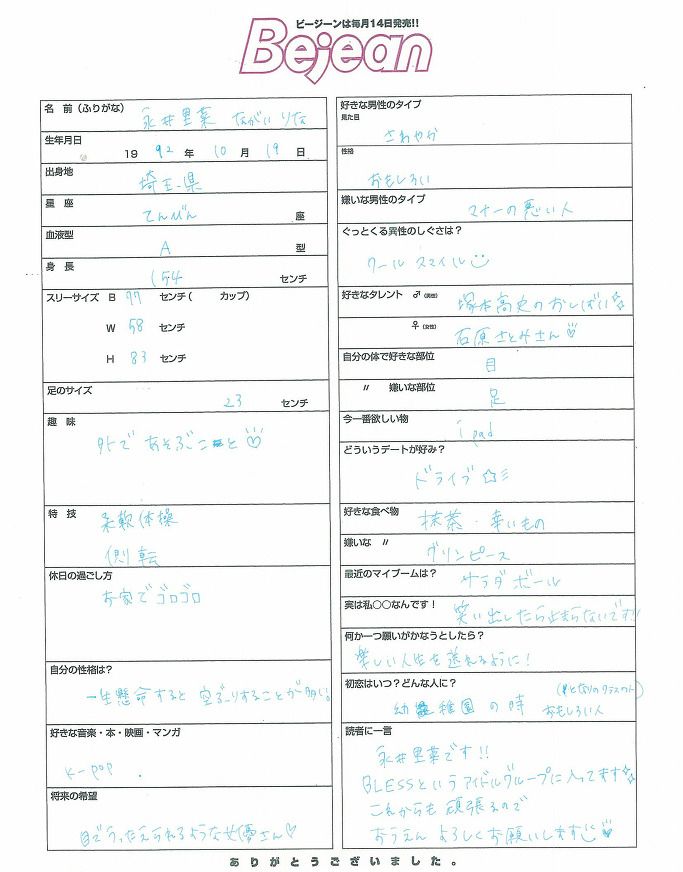 ビージーンは毎月14日発売!!
Bejean
名 前(ふりがな) 永井里菜 ながい りな
生年月日 1992年 10月 19日
出身地 埼玉県
星 座 てんびん 座
血液型 A 型
身 長 154 センチ
スリーサイズ B 77 センチ( カップ)
W 58 センチ
H 83 センチ
足のサイズ 23 センチ
趣 味
外で あそぶこと♡
特 技 柔軟体操
側転
休日の過ごし方
お家でゴロゴロ
自分の性格は?
一生懸命すると空ぶりすることが多い。
好きな音楽・本・映画・マンガ
K-POP.
将来の希望
目でうったえられるような女優さん♡
好きな男性のタイプ
見た目
さわやか
性格
おもしろい
嫌いな男性のタイプ マナーの悪い人
ぐっとくる異性のしぐさは?
クール スマイル
好きなタレント ♂(男性) 塚本高史のおしばい☆
♀(女性) 石原さとみさん♡
自分の体で好きな部位 目
〃 嫌いな部位 足
今一番欲しい物 ipad
どういうデートが好み?
ドライブ☆
好きな食べ物 抹茶・辛いもの
嫌いな 〃 グリンピース
最近のマイブームは? サラダボール
実は私〇〇なんです! 笑い出したら止まらないです!!
何か一つ願いがかなうとしたら?
楽しい人生を送れるように!
初恋はいつ?どんな人に? (となりのクラスの人)
幼稚園の時 おもしろい人
読者に一言
永井里菜です!!
BLESSというアイドルグループに入ってます☆
これからも頑張るので
おうえん よろしくお願いします♡
ありがとうございました。